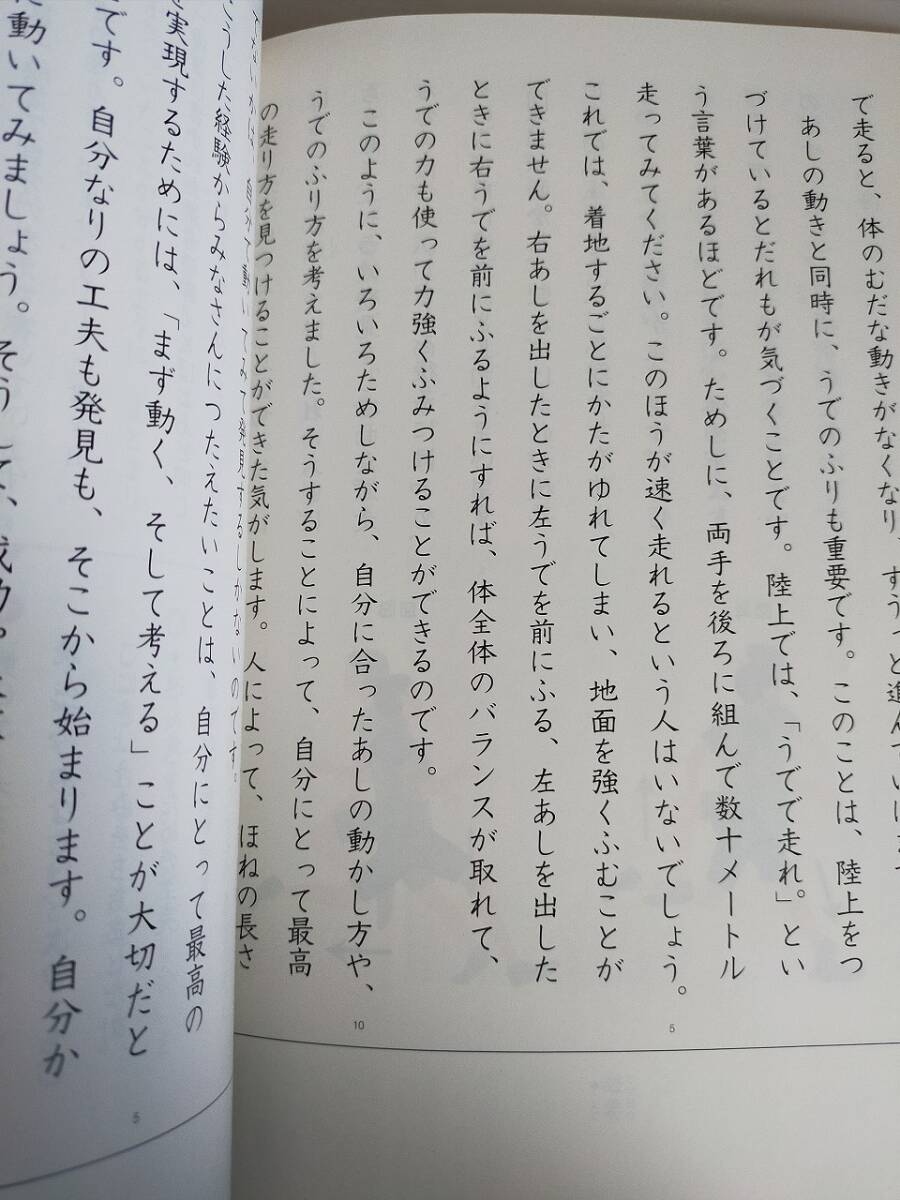 で走ると、体のむだな動きがなくなり、すうっと進んでい
あしの動きと同時に、うでのふりも重要です。このことは、陸上をつ
づけているとだれもが気づくことです。陸上では、「うでで走れ。」とい
う言葉があるほどです。ためしに、両手を後ろに組んで数十メートル
走ってみてください。このほうが速く走れるという人はいないでしょう。
これでは、着地するごとにかたがゆれてしまい、地面を強くふむことが
できません。右あしを出したときに左うでを前にふる、左あしを出した
ときに右うでを前にふるようにすれば、体全体のバランスが取れて、
うでの力も使って力強くふみつけることができるのです。
このように、いろいろためしながら、自分に合ったあしの動かし方や、
うでのふり方を考えました。そうすることによって、自分にとって最高
の走り方を見つけることができた気がします。人によって、ほねの長さ
5
10
動いてみて発見するしかないのです。
こうした経験からみなさんにつたえたいことは、自分にとって最高の
実現するためには、「まず動く、そして考える」ことが大切だと
です。自分なりの工夫も発見も、そこから始まります。自分か
に動いてみましょう。そうして、成功
5